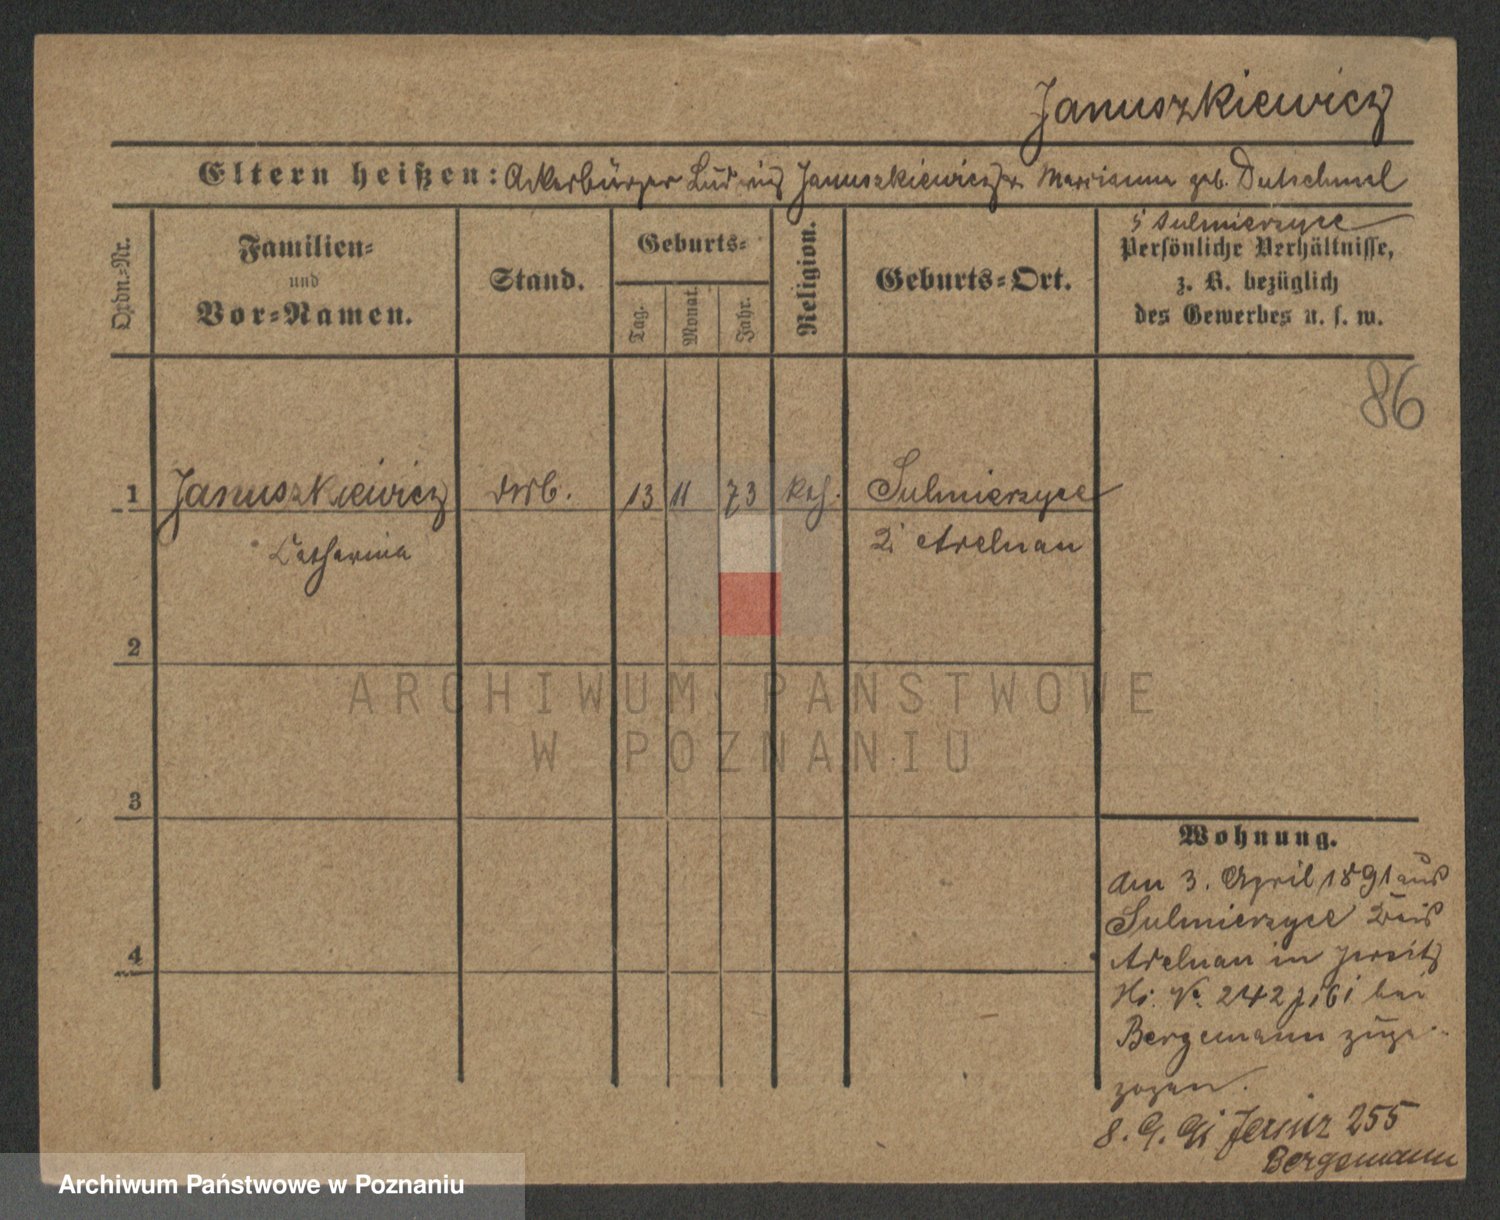 Januszkiewicz
Eltern heißen: Ackerbürger Ludwig Januszkiewicz u. Marianna geb. Dutschmal
Sulmierzyce
Ordn.-Nr.
Familien-
und
Vor-Namen.
Stand.
Geburts-
Tag.
Monat.
Jahr.
Religion.
Geburts-Ort.
Persönliche Verhältnisse,
z. B. bezüglich
des Gewerbes u. s. w.
86
1 Januszkiewicz 13 11 73 kath. Sulmierzyce
Catharina Adelnau
2
3
4
Wohnung.
Am 3. April 1891 aus
Sulmierzyce Kreis
Adelnau in Jersitz
No. 242 bei
Bergemann zuge-
zogen.
8. 9. 91 Jersitz 255
Bergemann
ARCHIWUM PAŃSTWOWE
W POZNANIU
Archiwum Państwowe w Poznaniu